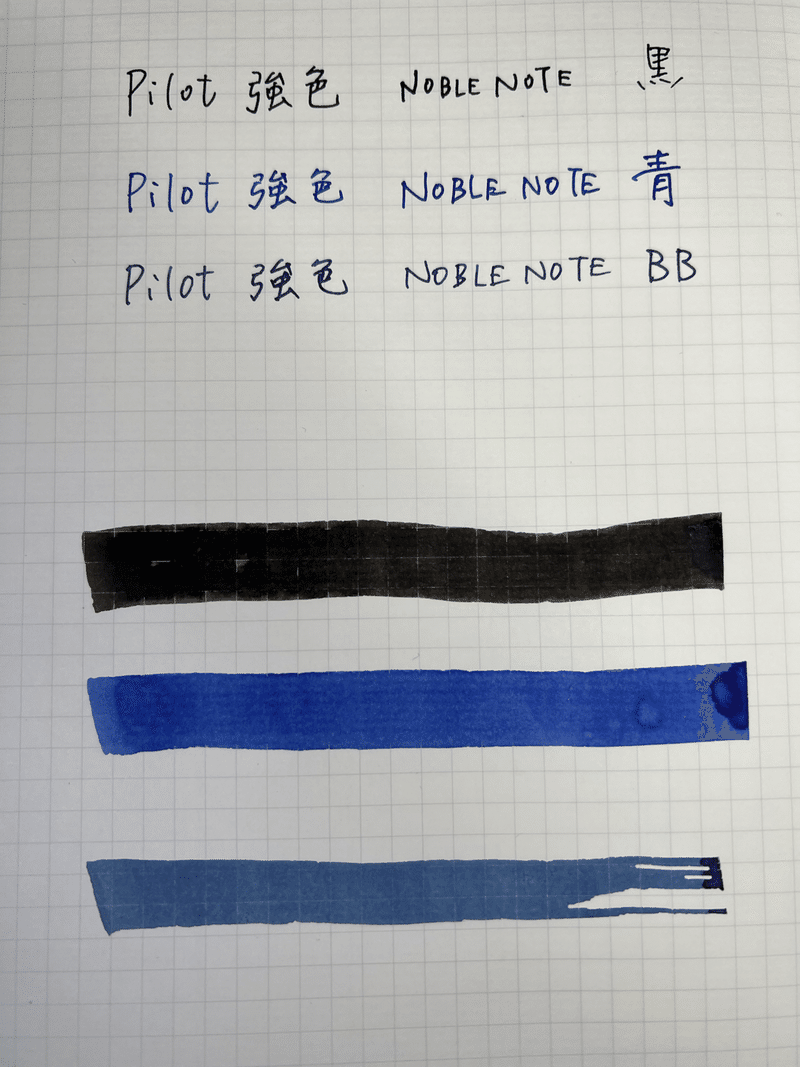 Pilot 強色 NOBLE NOTE 黒
Pilot 強色 NOBLE NOTE 青
Pilot 強色 NOBLE NOTE BB